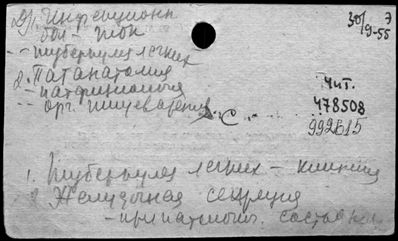 1. Инфекционн
бол-
туберкулез легких
2. Патанатомия
- патфизиология
- орг. пищеварения
30/ 7
19-55
Чит.
478508
992515
С
1. Туберкулез легких - клиника
2. Желудочная секреция
- при патолог. состоян